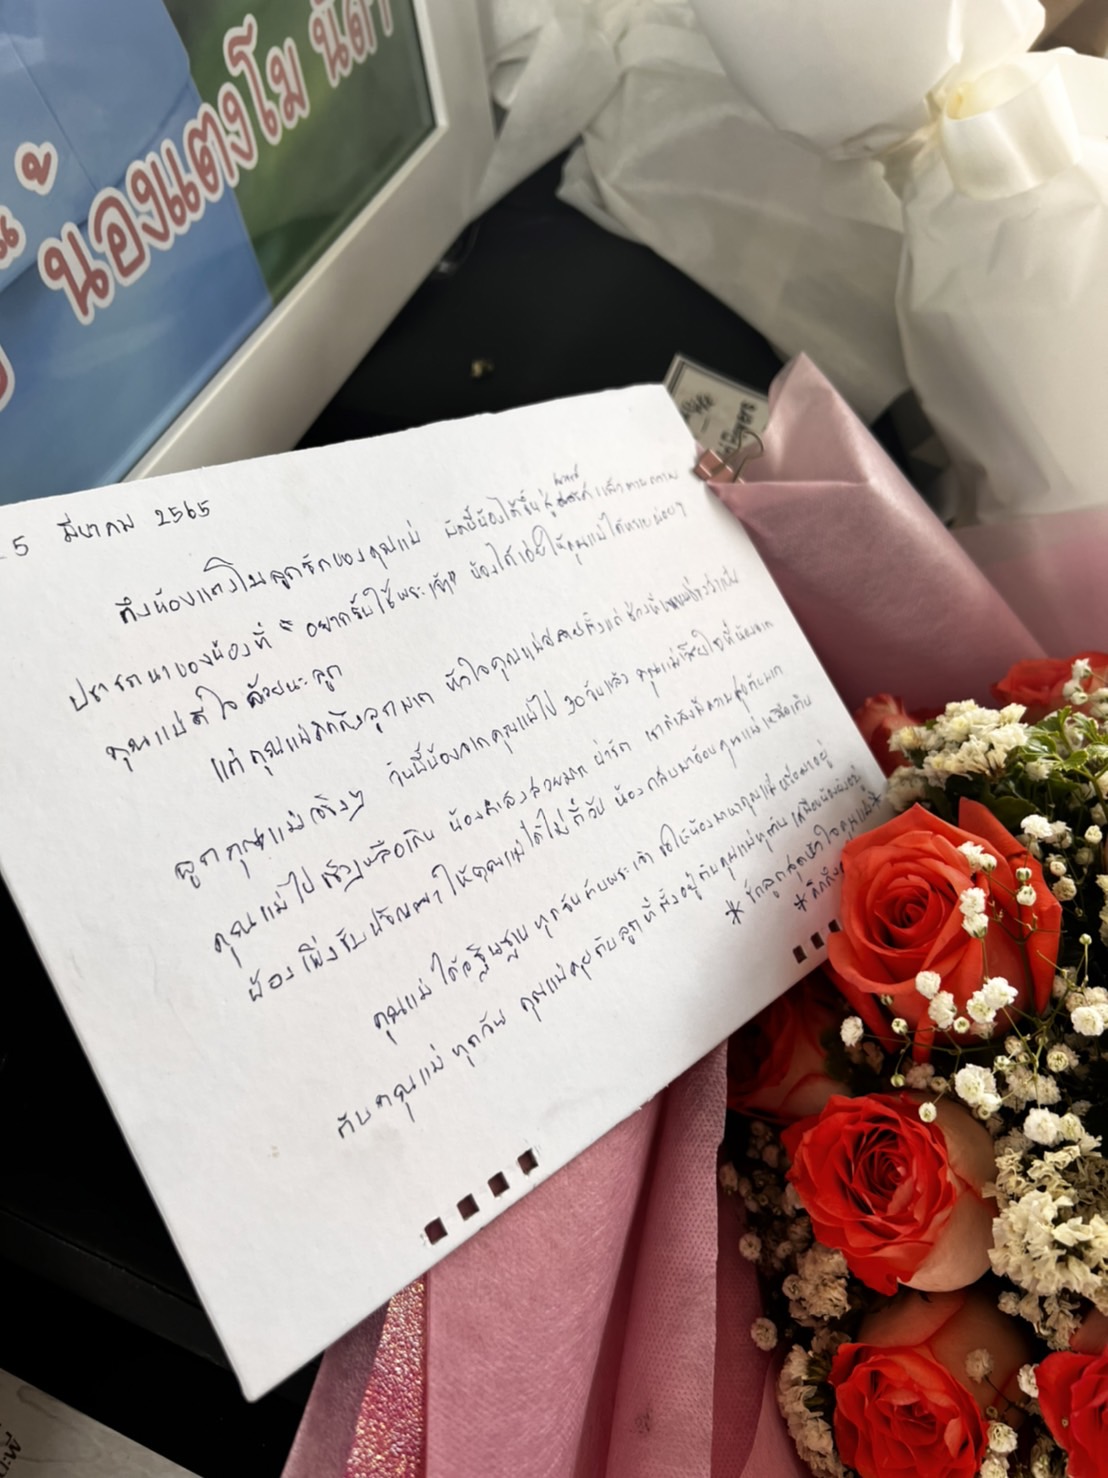 น้องแตงโม นิดา
5 มีนาคม 2565
ถึงน้องแตงโมลูกรักของคุณแม่ วันนี้น้องได้ขึ้นสู่สวรรค์แล้วตามความ
ปรารถนาของน้องที่ "อยากรับใช้พระเจ้า" น้องได้ช่วยให้คุณแม่ได้หายเหนื่อยๆ
คุณแม่ดีใจด้วยนะลูก
แต่คุณแม่คิดถึงลูกมาก หัวใจคุณแม่สลายตั้งแต่
ลูกคุณแม่จริงๆ วันนี้น้องจากคุณแม่ไป 30 วันแล้ว คุณแม่เสียใจที่น้องจาก
คุณแม่ไปเร็วเหลือเกิน น้องกำลังสวยมาก น่ารัก เรากำลังมีความสุขกันมาก
น้องเพิ่งรับปริญญาให้คุณแม่ได้ไม่กี่วัน น้องกลับมาอ้อนคุณแม่เหลือเกิน
คุณแม่ได้อธิษฐานทุกวันกับพระเจ้า ขอให้น้องมาหาคุณแม่เหมือนอยู่
กับคุณแม่ทุกวัน คุณแม่คุยกับลูกที่
* รักลูกสุดหัวใจคุณแม่ *
* คิดถึง